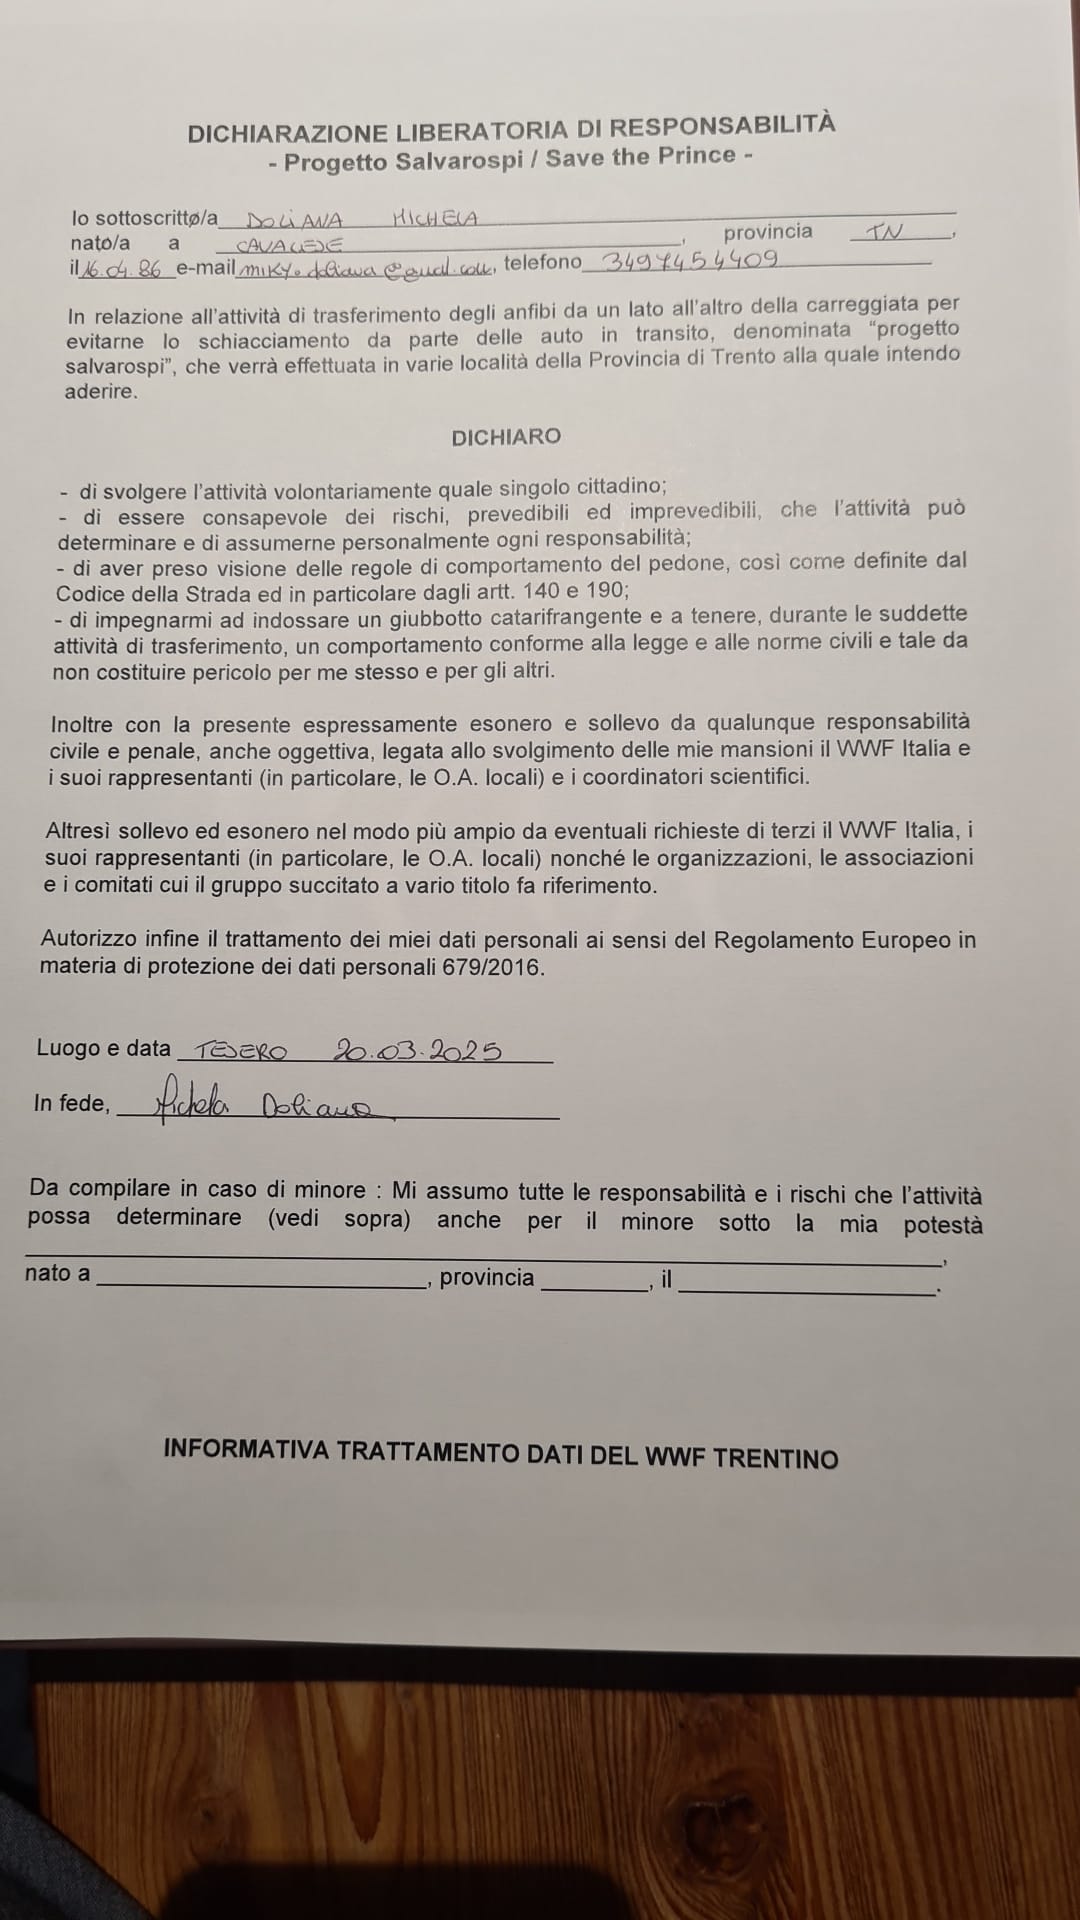 DICHIARAZIONE LIBERATORIA DI RESPONSABILITÀ
- Progetto Salvarospi / Save the Prince -
Io sottoscritto/a DOLIANA MICHELA
nato/a a CAVALESE, provincia TN,
il 16.04.86 e-mail miky.doliana@gmail.com, telefono 3497454409
In relazione all'attività di trasferimento degli anfibi da un lato all'altro della carreggiata per
evitarne lo schiacciamento da parte delle auto in transito, denominata “progetto
salvarospi”, che verrà effettuata in varie località della Provincia di Trento alla quale intendo
aderire.
DICHIARO
- di svolgere l'attività volontariamente quale singolo cittadino;
- di essere consapevole dei rischi, prevedibili ed imprevedibili, che l'attività può
determinare e di assumerne personalmente ogni responsabilità;
- di aver preso visione delle regole di comportamento del pedone, così come definite dal
Codice della Strada ed in particolare dagli artt. 140 e 190;
- di impegnarmi ad indossare un giubbotto catarifrangente e a tenere, durante le suddette
attività di trasferimento, un comportamento conforme alla legge e alle norme civili e tale da
non costituire pericolo per me stesso e per gli altri.
Inoltre con la presente espressamente esonero e sollevo da qualunque responsabilità
civile e penale, anche oggettiva, legata allo svolgimento delle mie mansioni il WWF Italia e
i suoi rappresentanti (in particolare, le O.A. locali) e i coordinatori scientifici.
Altresì sollevo ed esonero nel modo più ampio da eventuali richieste di terzi il WWF Italia, i
suoi rappresentanti (in particolare, le O.A. locali) nonché le organizzazioni, le associazioni
e i comitati cui il gruppo succitato a vario titolo fa riferimento.
Autorizzo infine il trattamento dei miei dati personali ai sensi del Regolamento Europeo in
materia di protezione dei dati personali 679/2016.
Luogo e data TESERO 20.03.2025
In fede, Michela Doliana
Da compilare in caso di minore : Mi assumo tutte le responsabilità e i rischi che l'attività
possa determinare (vedi sopra) anche per il minore sotto la mia potestà
,
nato a , provincia , il .
INFORMATIVA TRATTAMENTO DATI DEL WWF TRENTINO